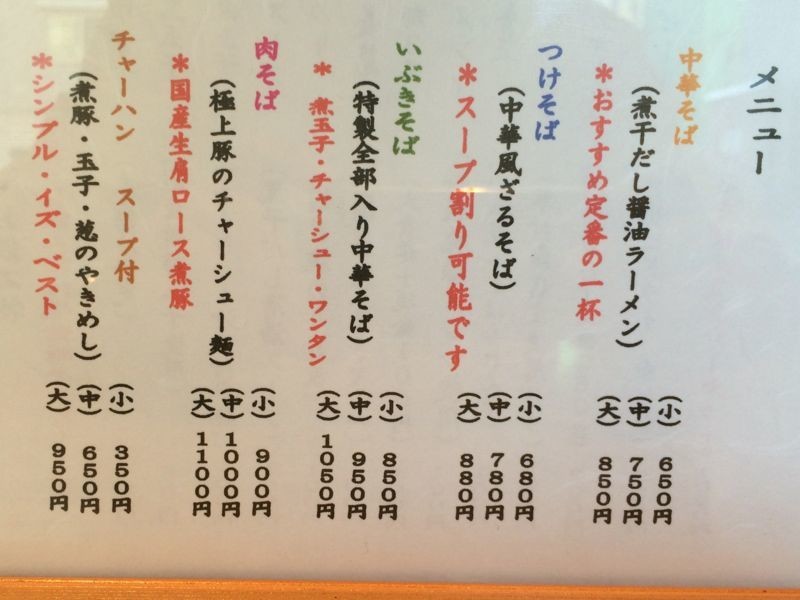 メニュー
中華そば
（煮干だし醤油ラーメン）
＊おすすめ定番の一杯
（小） 650円
（中） 750円
（大） 850円
つけそば
（中華風ざるそば）
＊スープ割り可能です
（小） 680円
（中） 780円
（大） 880円
いぶきそば
（特製全部入り中華そば）
＊ 煮玉子・チャーシュー・ワンタン
（小） 850円
（中） 950円
（大） 1050円
肉そば
（極上豚のチャーシュー麺）
＊国産生肩ロース煮豚
（小） 900円
（中） 1000円
（大） 1100円
チャーハン スープ付
（煮豚・玉子・葱のやきめし）
＊シンプル・イズ・ベスト
（小） 350円
（中） 650円
（大） 950円